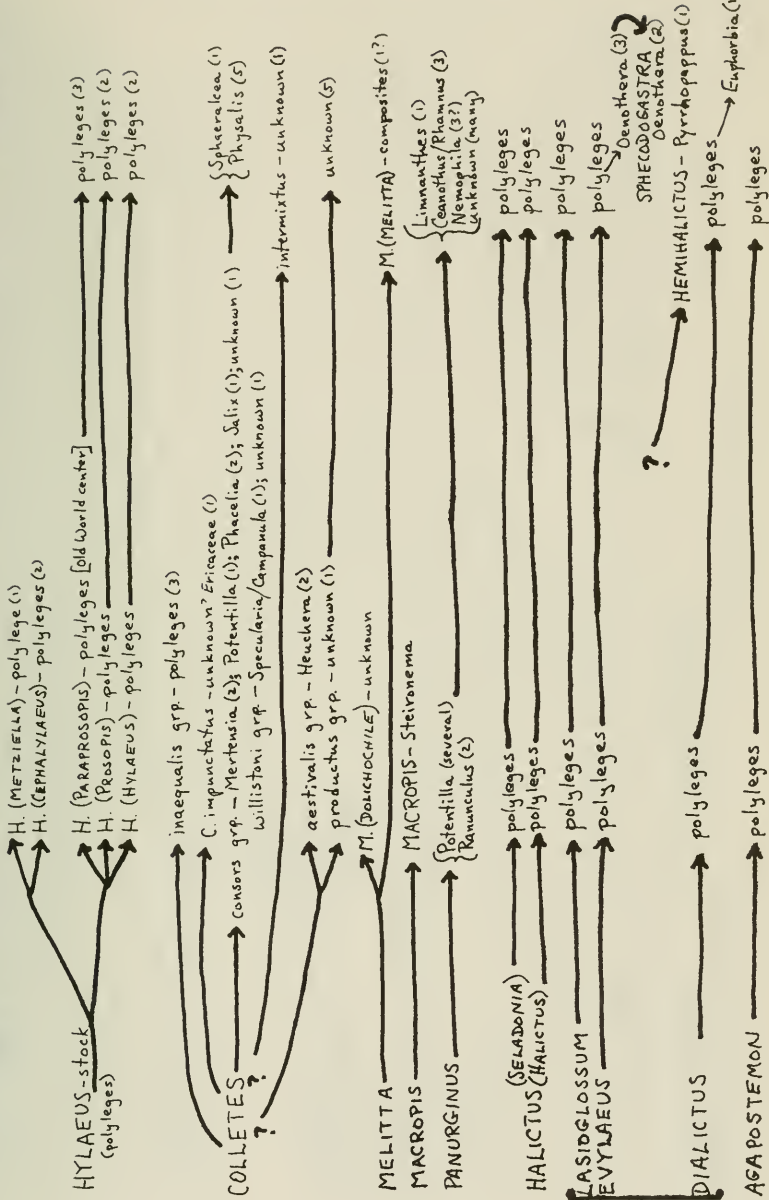 HYLAEUS-stock
(polyleges)
H. (METZIELLA) - polylege (1)
H. (CEPHALYLAEUS) - polyleges (2)
H. (PARAPROSOPIS) - polyleges [Old World center]
H. (PROSOPIS) - polyleges
H. (HYLAEUS) - polyleges
polyleges (3)
polyleges (2)
polyleges (2)
COLLETES
?
?
inaequalis grp. - polyleges (3)
C. impunctatus - unknown? Ericaceae (1)
consors grp. - Mertensia (2); Potentilla (1); Phacelia (2); Salix (1); unknown (1)
willistoni grp. - Specularia/Campanula (1); unknown (1)
{Sphaeralcea (1)
{Physalis (5)
intermixtus - unknown (1)
aestivalis grp. - Heuchera (2)
productus grp. - unknown (1)
unknown (5)
MELITTA
M. (DOLICHOCHILE) - unknown
M. (MELITTA) - composites (1?)
MACROPIS
MACROPIS - Steironema
PANURGINUS
{Potentilla (several)
{Ranunculus (2)
{Limnanthes (1)
{Ceanothus/Rhamnus (3)
{Nemophila (3?)
{unknown (many)
HALICTUS (SELADONIA)
(HALICTUS)
polyleges
polyleges
polyleges
polyleges
LASIOGLOSSUM
polyleges
polyleges
EVYLAEUS
polyleges
polyleges
Oenothera (3)
SPHECODOGASTRA
Oenothera (2)
?
HEMIHALICTUS - Pyrrhopappus (1)
DIALICTUS
polyleges
polyleges
Euphorbia (1
AGAPOSTEMON
polyleges
polyleges